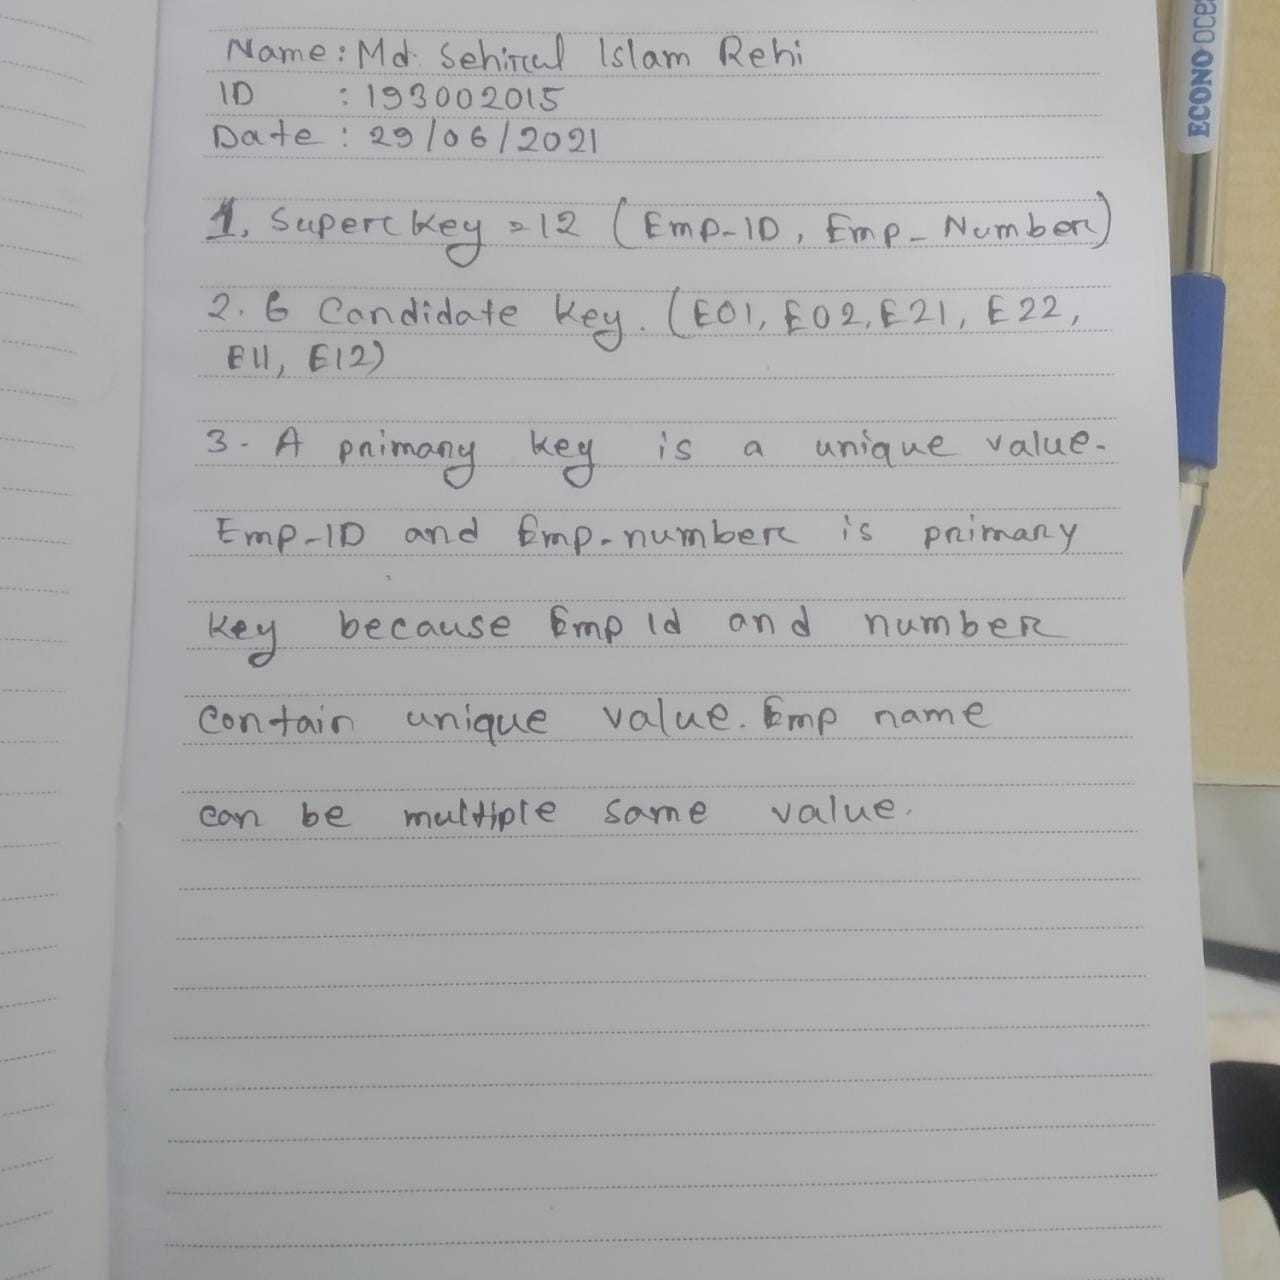 Name: Md. Sehirul Islam Rehi
ID : 193002015
Date : 29/06/2021
1. Super Key = 12 (Emp-ID, Emp_Number)
2. 6 Candidate Key. (E01, E02, E21, E22,
E11, E12)
3. A primary key is a unique value.
Emp-ID and Emp-number is primary
key because Emp Id and number
contain unique value. Emp name
can be multiple same value.
ECONO OCEA